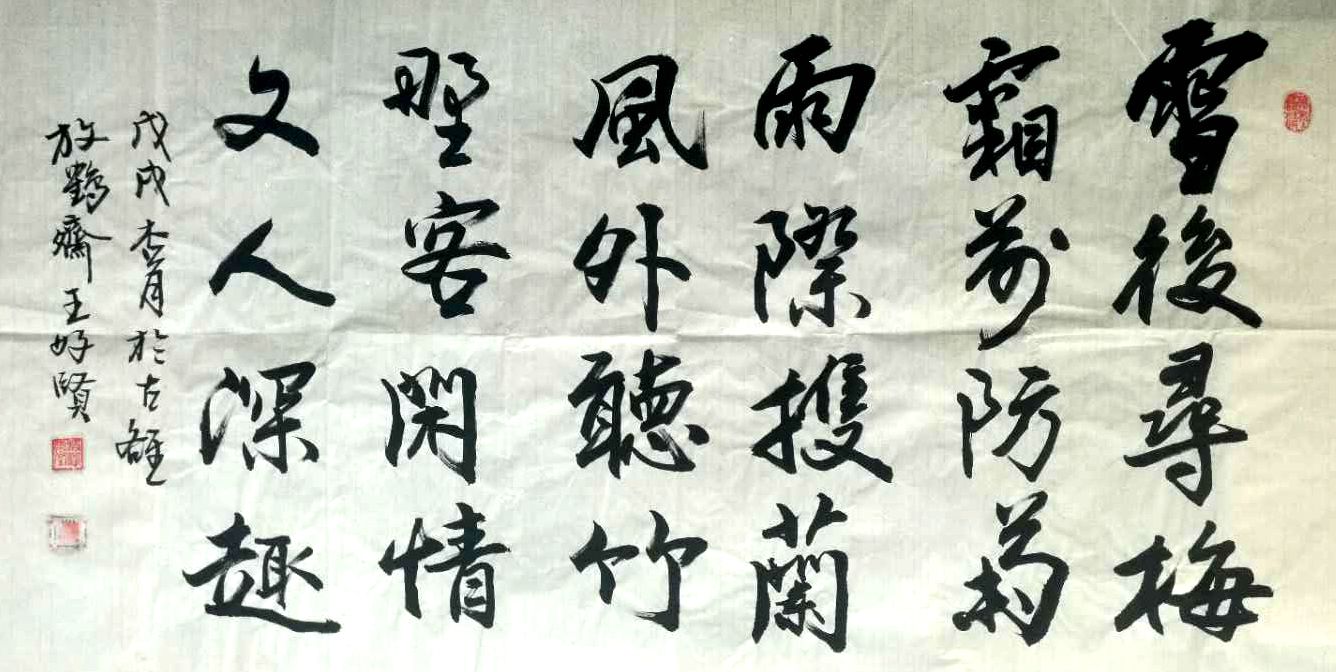 雪後尋梅
霜前防菊
雨際攜蘭
風外聽竹
野客閑情
文人深趣
戊戌杏月於古雒
放鶴齋王好賢